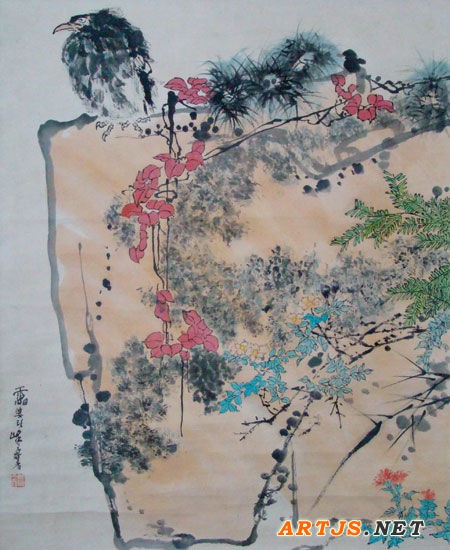 雷婆頭峰壽者
ARTJS.NET